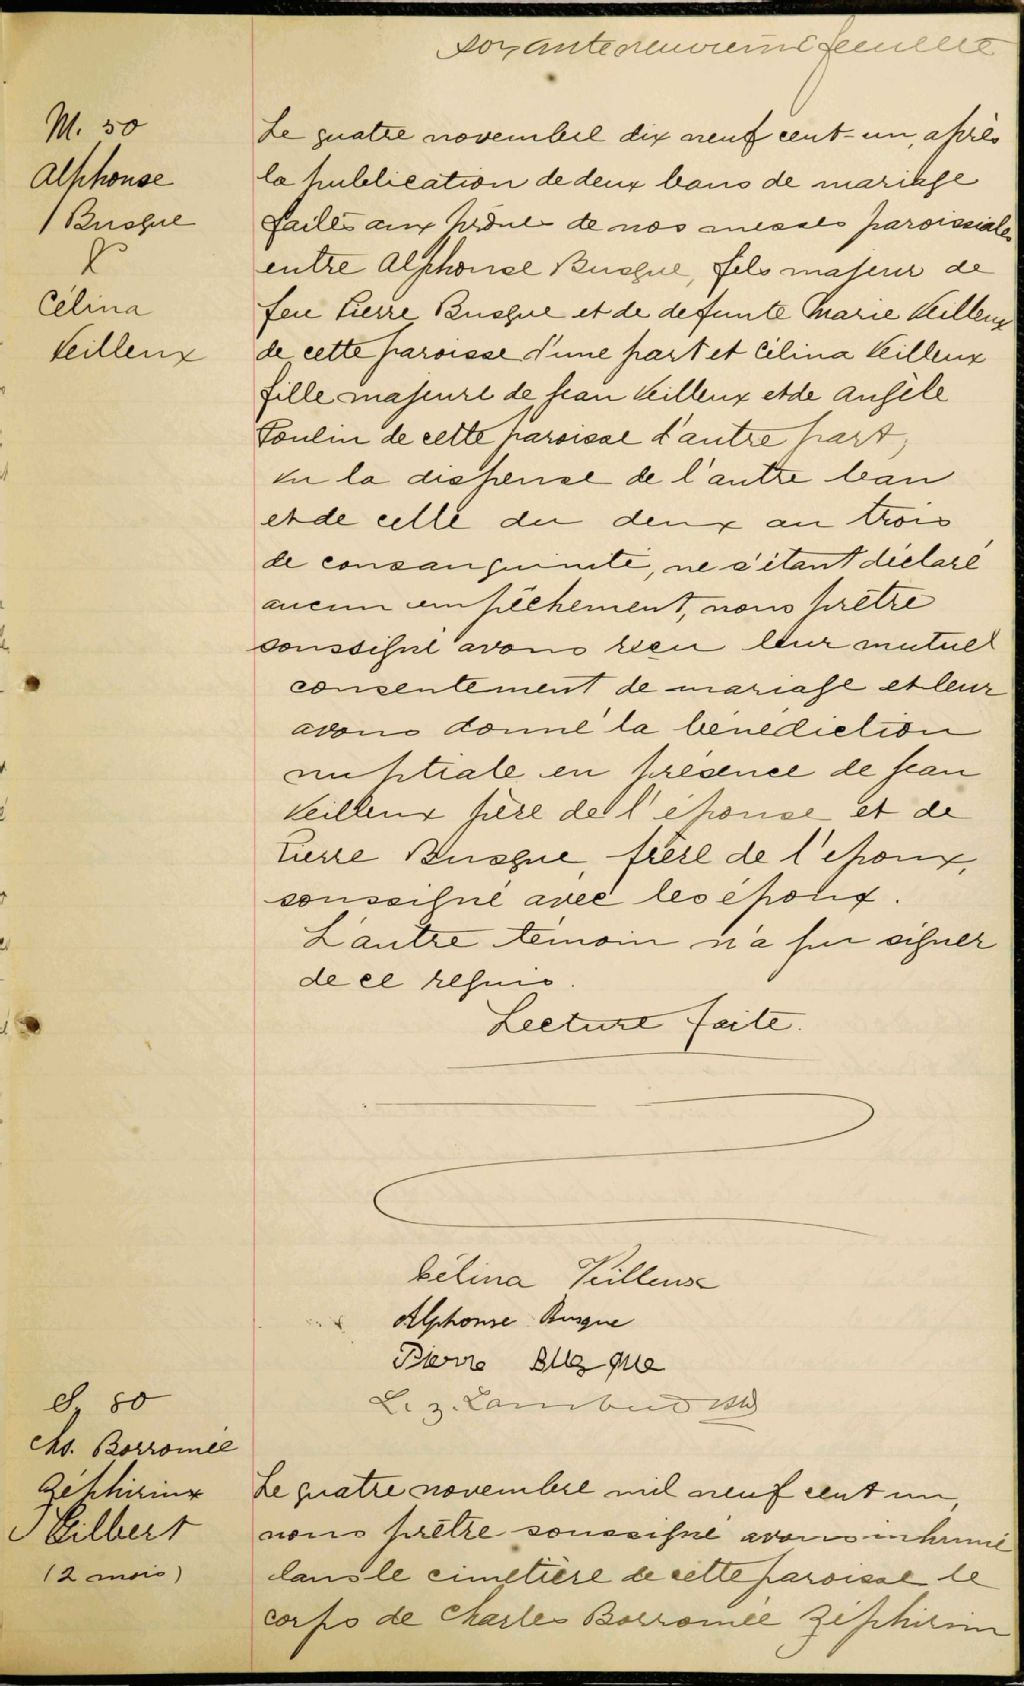 soixante neuvième feuillet
M. 50
Alphonse
Busque
&
Célina
Veilleux
Le quatre novembre dix neuf cent-un, après
la publication de deux bans de mariage
faites aux prônes de nos messes paroissiales
entre Alphonse Busque, fils majeur de
feu Pierre Busque et de defunte Marie Veilleux
de cette paroisse d'une part et Célina Veilleux
fille majeure de Jean Veilleux et de Angèle
Poulin de cette paroisse d'autre part,
vu la dispense de l'autre ban
et de celle du deux au trois
de consanguinité, ne s'étant déclaré
aucun empêchement, nous prêtre
soussigné avons reçu leur mutuel
consentement de mariage et leur
avons donné la bénédiction
nuptiale en présence de Jean
Veilleux père de l'épouse et de
Pierre Busque, frère de l'epoux,
soussigné avec les époux.
L'autre témoin n'a pu signer
de ce requis.
Lecture faite.
Célina Veilleux
Alphonse Busque
Pierre Busque
L. z. Lambert
S. 80
Chs. Borromée
Zéphirin
Gilbert
(2 mois)
Le quatre novembre mil neuf cent un,
nous prêtre soussigné avons inhumé
dans le cimetière de cette paroisse le
corps de Charles Borromée Zéphirin